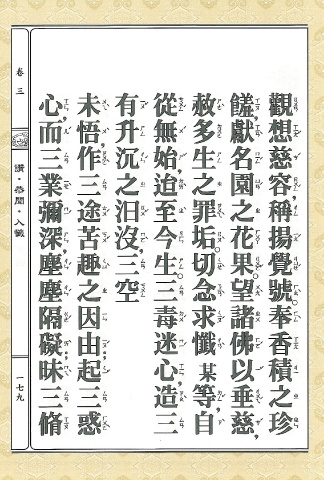 觀想慈容,稱揚覺號。奉香積之珍
饈,獻名園之花果。望諸佛以垂慈,
赦多生之罪垢。切念求懺某等自
從無始,迨至今生。三毒迷心,造三
有升沉之汩沒,三空
未悟,作三途苦趣之因由;起三惑
心,而三業彌深。塵塵隔礙,昧三脩
卷三
讚·恭聞·入懺
一七九